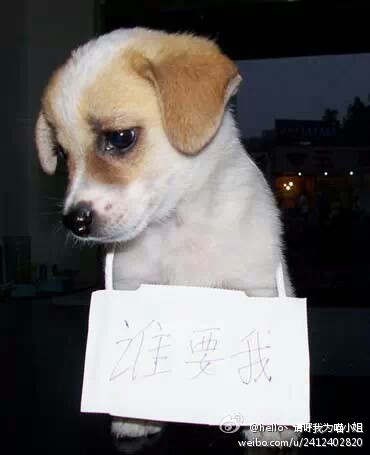 谁要我
@hello、请呼我为喵小姐
weibo.com/u/2412402820